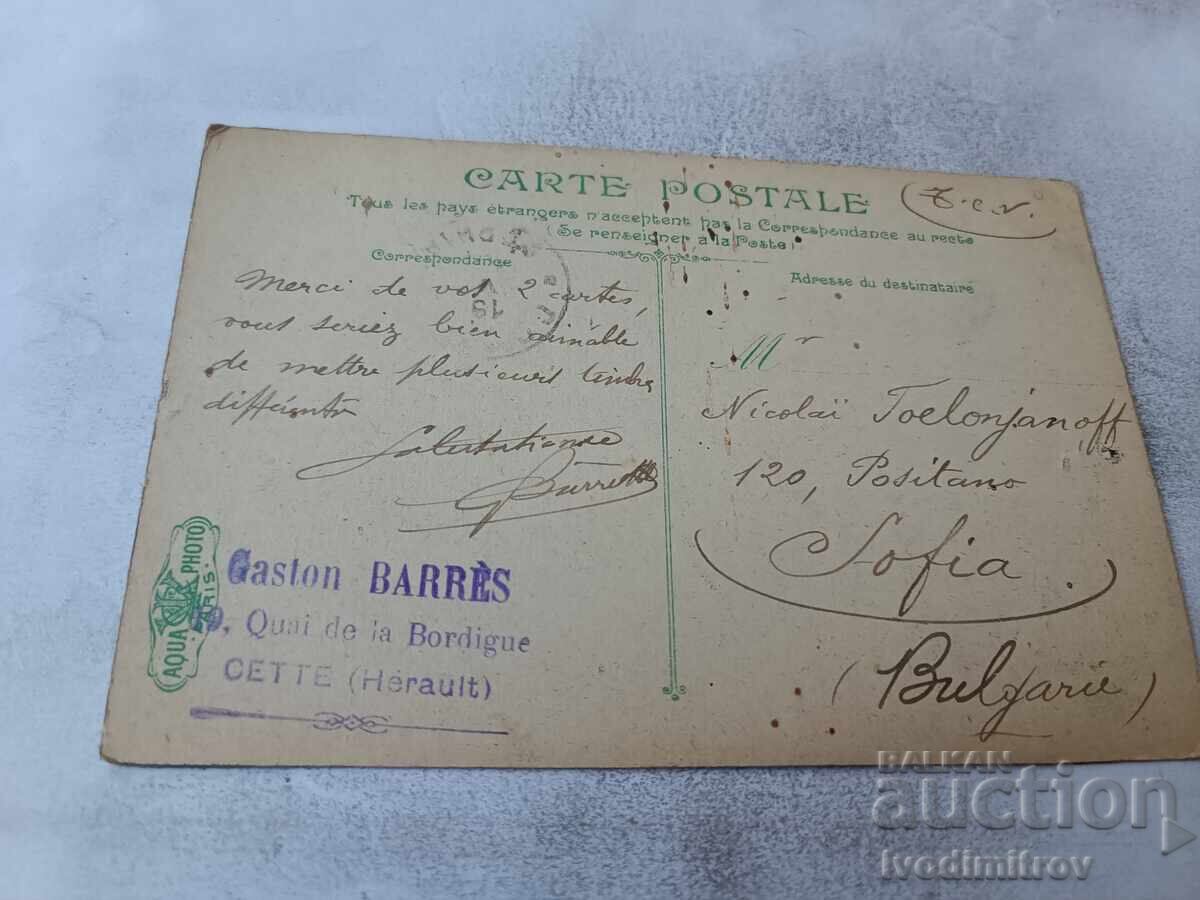 CARTE POSTALE
T.C.V.
Tous les pays étrangers n'acceptent pas la Correspondance au recto
(Se renseigner à la Poste)
Correspondance
Adresse du destinataire
Merci de vos 2 cartes,
vous seriez bien aimable
de mettre plusieurs timbre
différents
Salutations
Barrès
Mr
Nicolaï
120, Positano
Sofia
(Bulgarie)
AQUA PHOTO
PARIS
Gaston BARRÈS
Quai de la Bordigue
CETTE (Hérault)
BALKAN
auction
ivodimitrov